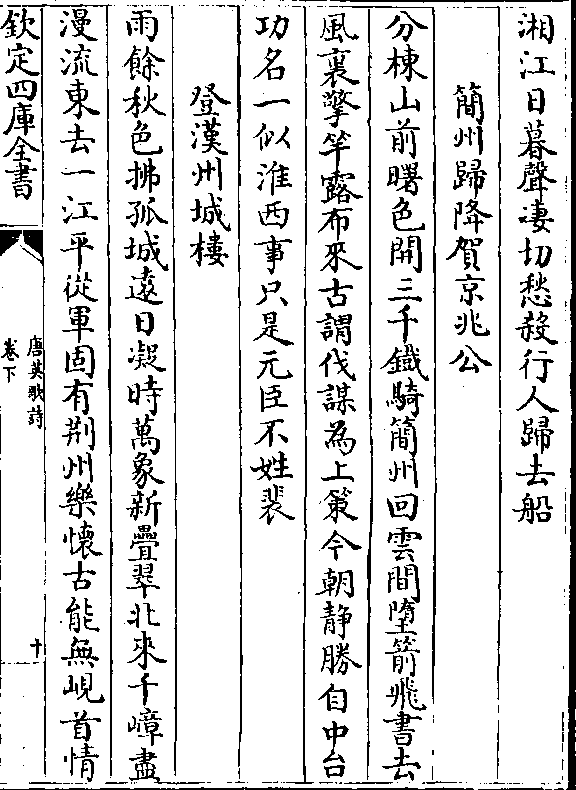 湘江日暮聲凄切愁殺行人歸去船
簡州歸降賀京兆公
分棟山前曙色開三千鐵騎簡州回雲間墮箭飛書去
風裏擎竿露布來古謂伐謀為上策今朝静勝自中台
功名一似淮西事只是元臣不姓裴
登漢州城樓
雨餘秋色拂孤城遠目凝時萬象新疊翠北來千嶂盡
漫流東去一江平從軍固有荆州樂懷古能無峴首情
欽定四庫全書
唐英歌詩
卷下
十